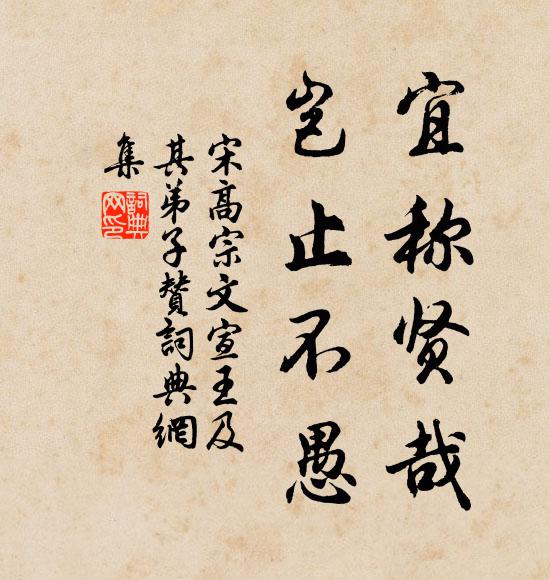 宜称贤哉
岂止不愚
宋高宗文宣王及
其弟子赞词典網
集
詞典
网印